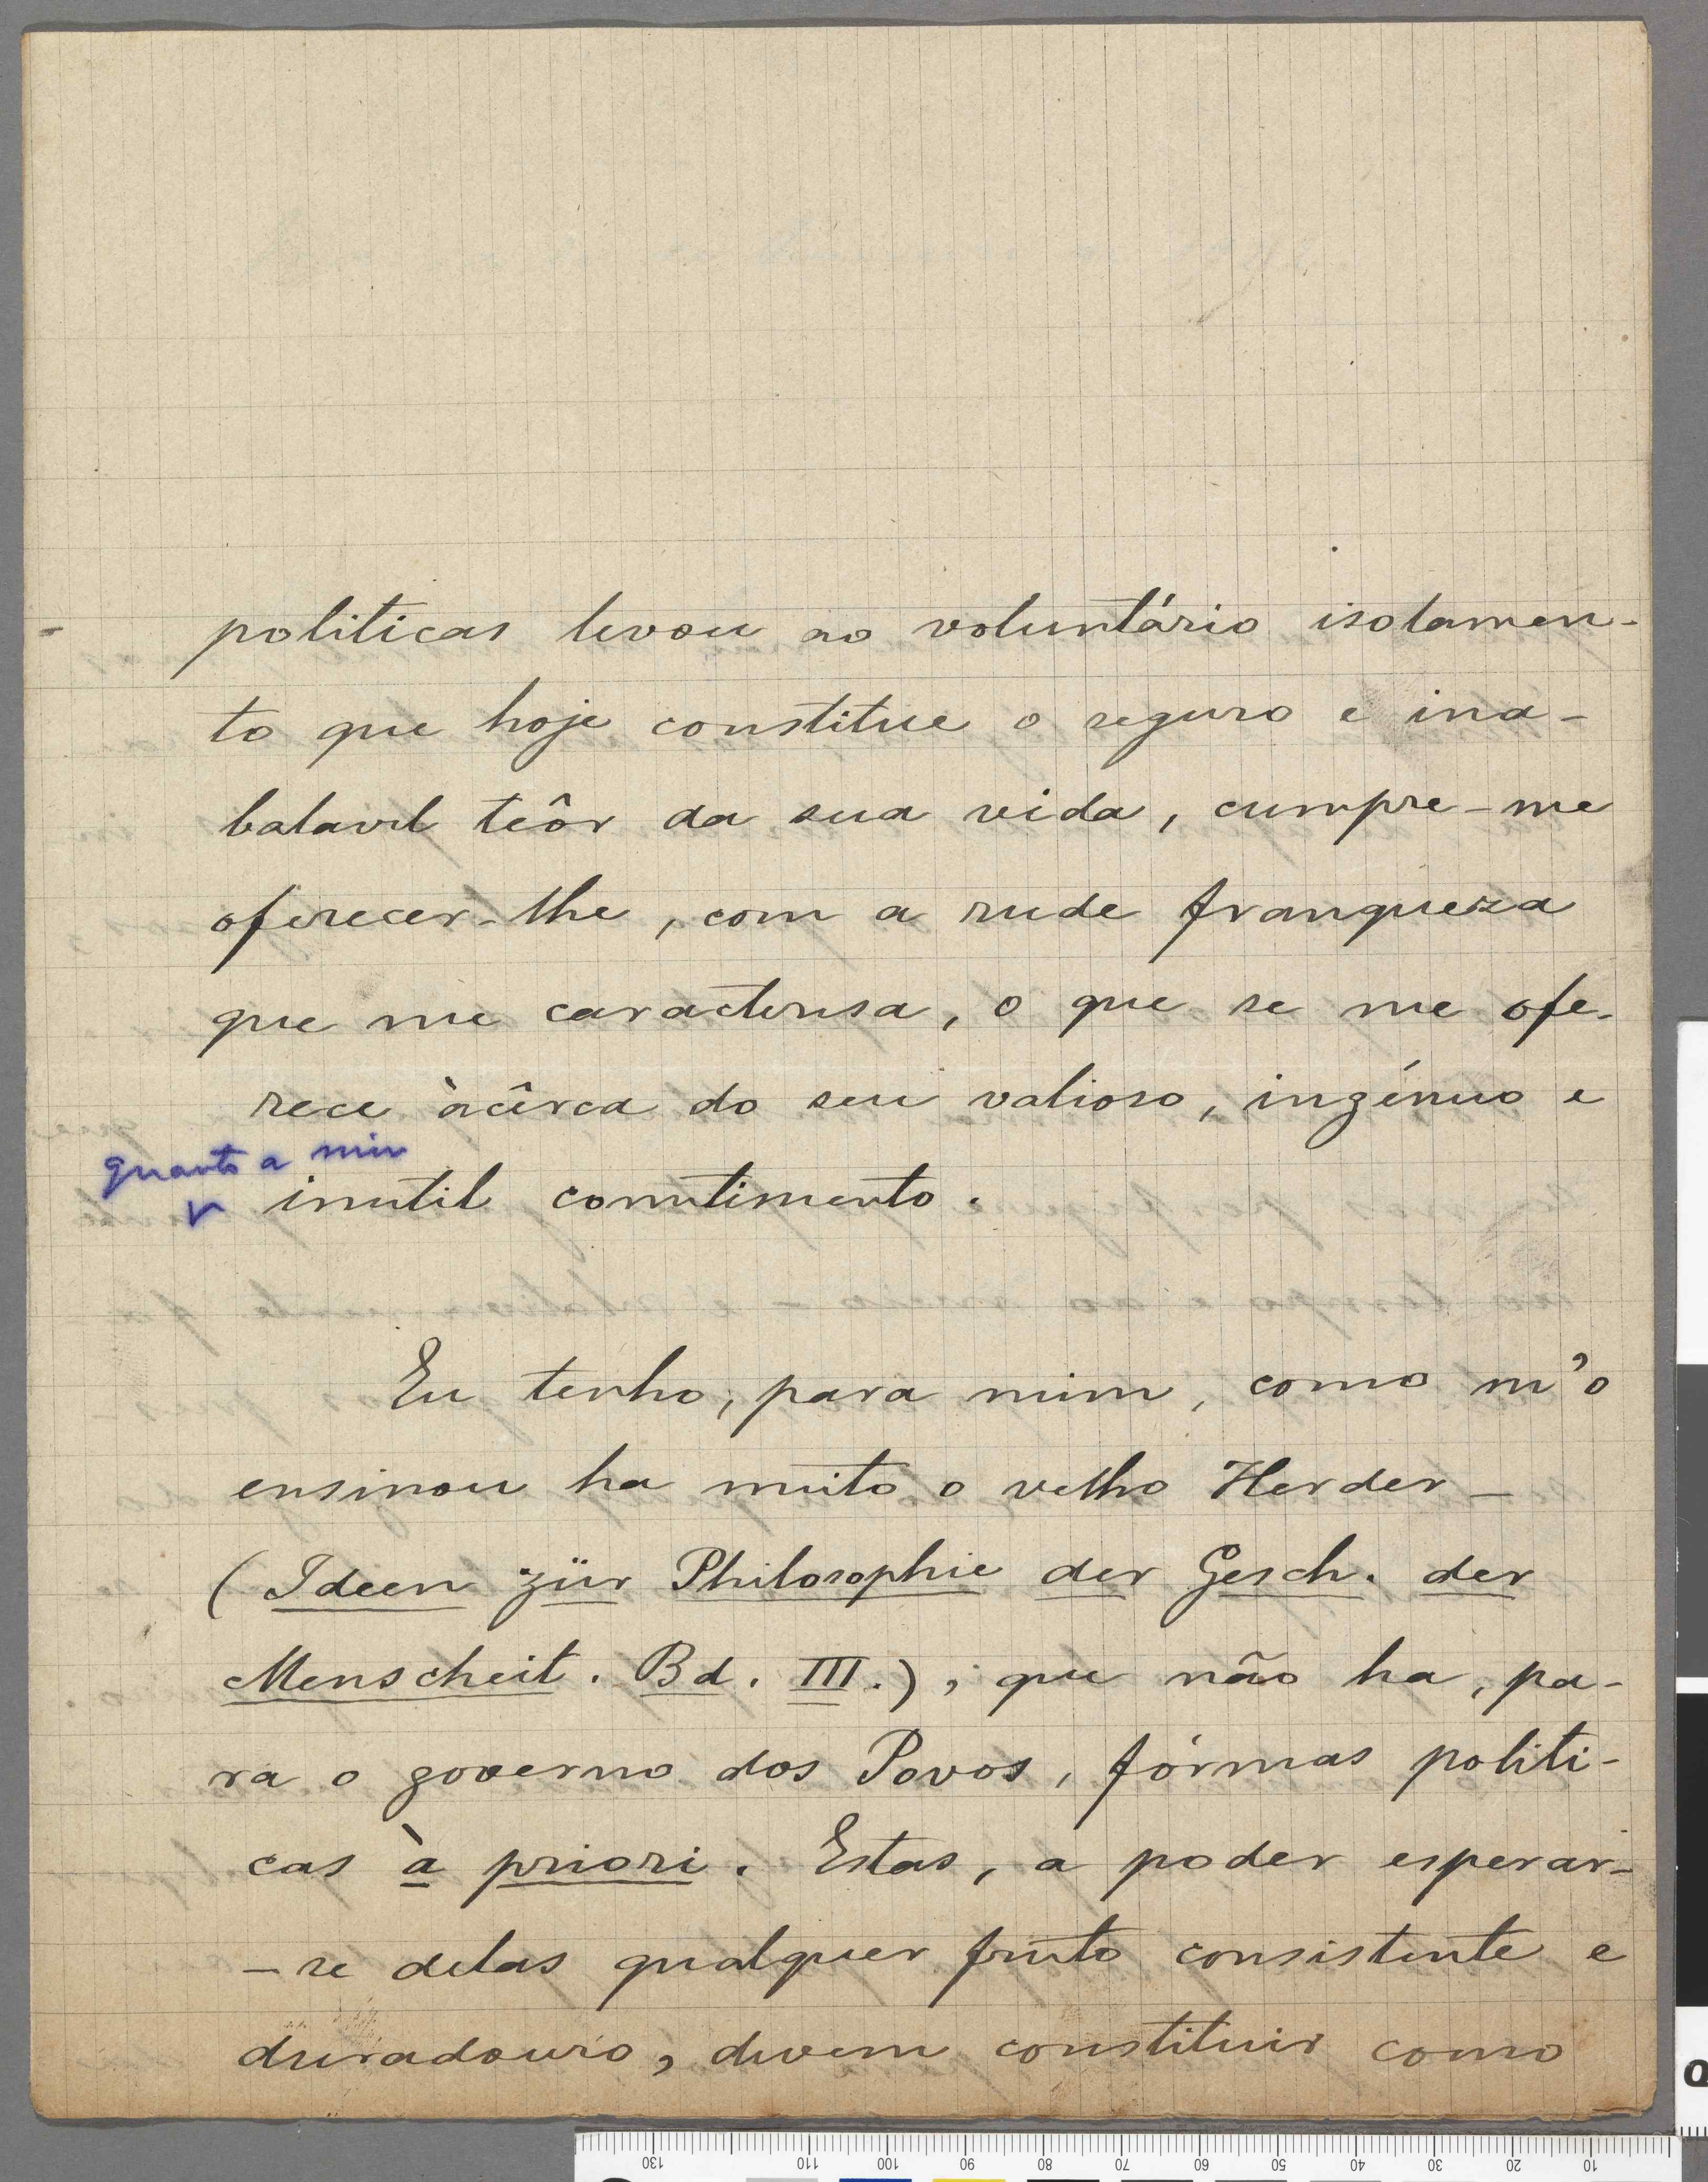 politicas levou ao voluntário isolamen-
to que hoje constitue o seguro e ina-
balavel teôr da sua vida, cumpre-me
oferecer-lhe, com a rude franqueza
que me caracterisa, o que se me ofe-
rece àcêrca do seu valioso, ingénuo e
quanto a mim
inutil cometimento.
Eu tenho, para mim, como m'o
ensinou ha muito o velho Herder –
(Ideen zür Philosophie der Gesch. der
Menscheit. Bd. III.), que não ha, pa-
ra o governo dos Povos, fórmas politi-
cas à priori. Estas, a poder esperar-
-se delas qualquer fruto consistente e
duradouro, devem constituir como
130 110 100 90 80 70 60 50 40 30 20 10